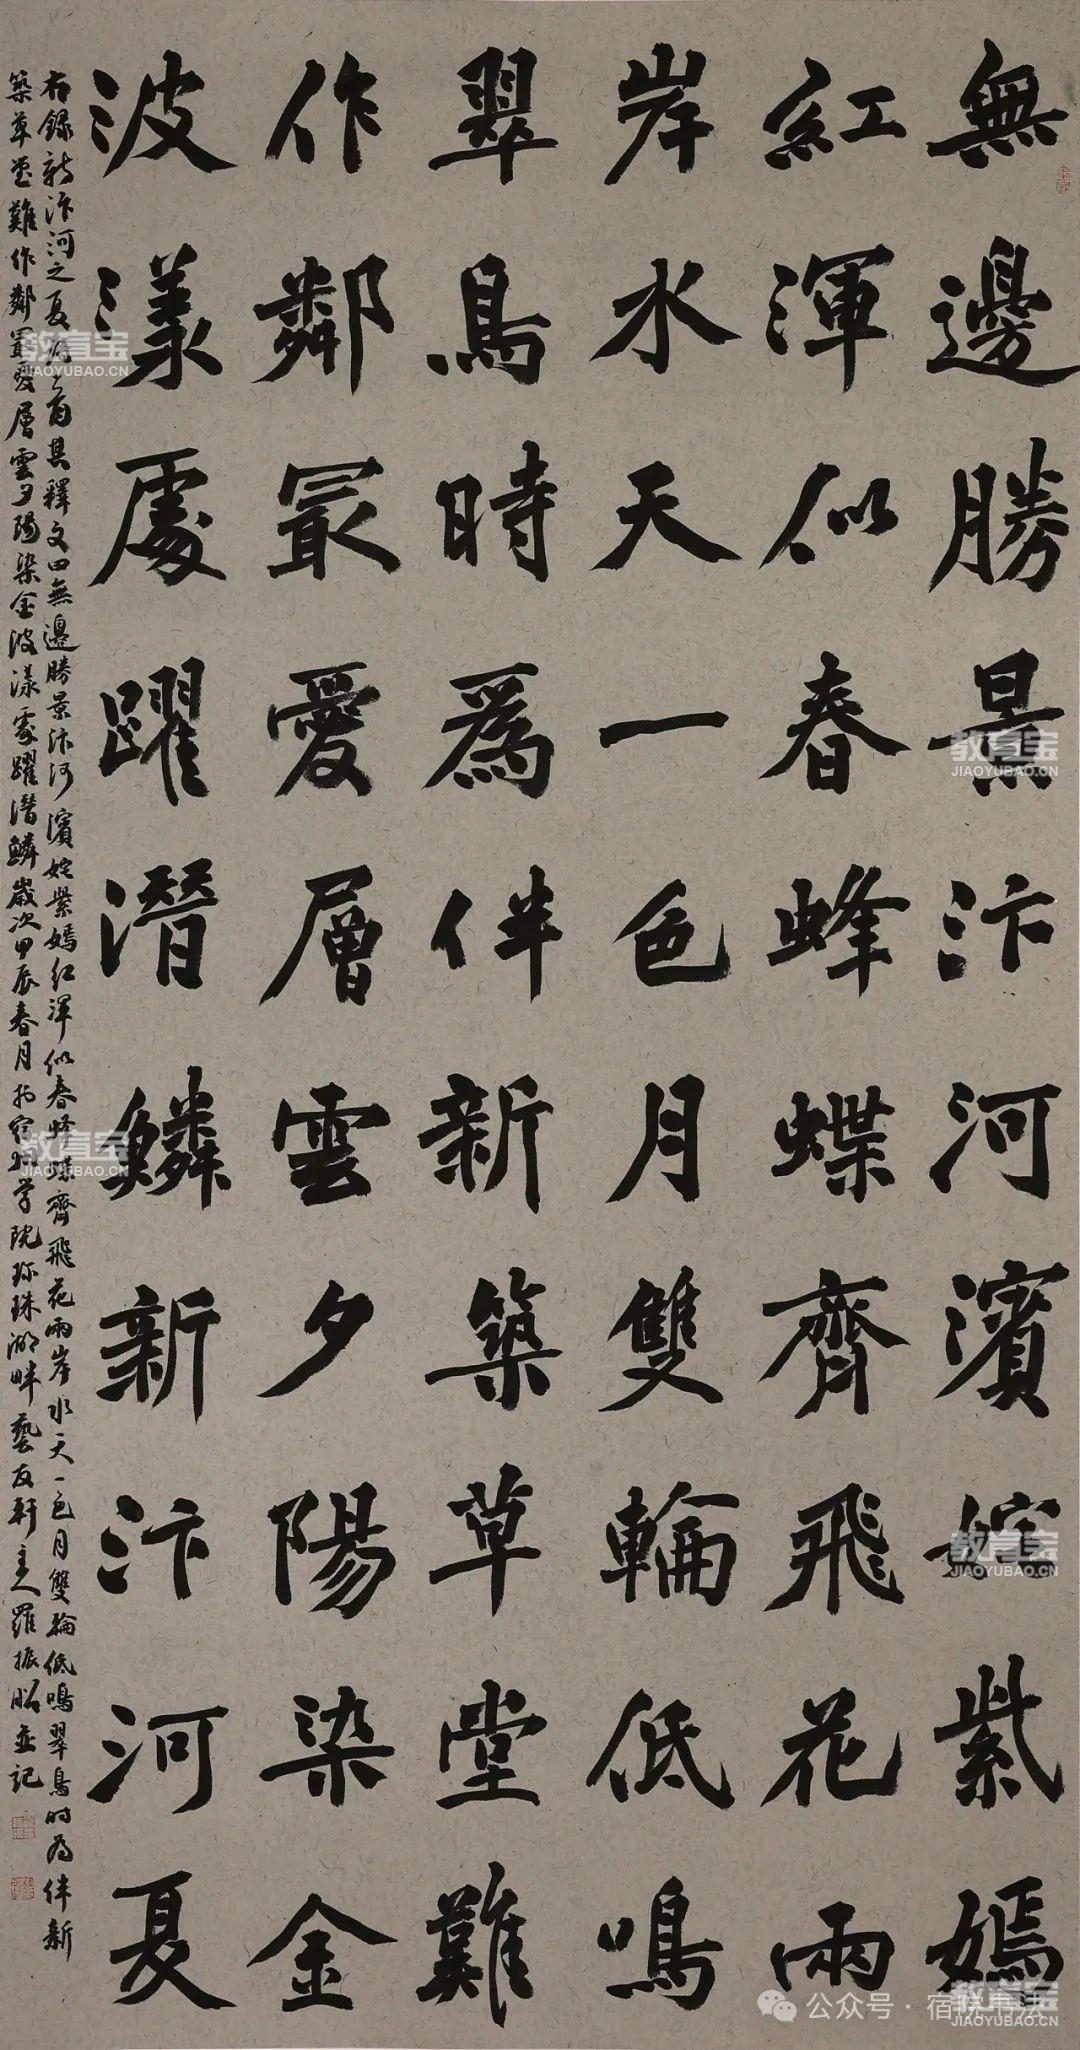 無邊勝景汴河濱姹紫嫣
紅渾似春蜂蝶齊飛花兩
岸水天一色月雙輪低鳴
翠鳥時爲伴新築草堂難
作鄰最愛層雲夕陽染金
波漾處躍潛鱗新汴河夏
右錄新汴河之夏首其釋文曰無邊勝景汴河濱姹紫嫣紅渾似春蜂蝶齊飛花兩岸水天一色月雙輪低鳴翠鳥時为伴新
築草堂難作鄰最愛層雲夕陽染金波漾處躍潛鱗歲次甲辰春月於宿州學院珍珠湖畔藝友軒主人羅振昭並記
教育宝
JIAOYUBAO.CN
教育宝
JIAOYUBAO.CN
教育宝
JIAOYUBAO.CN
教育宝
JIAOYUBAO.CN
教育宝
JIAOYUBAO.CN
公众号 · 宿院书法